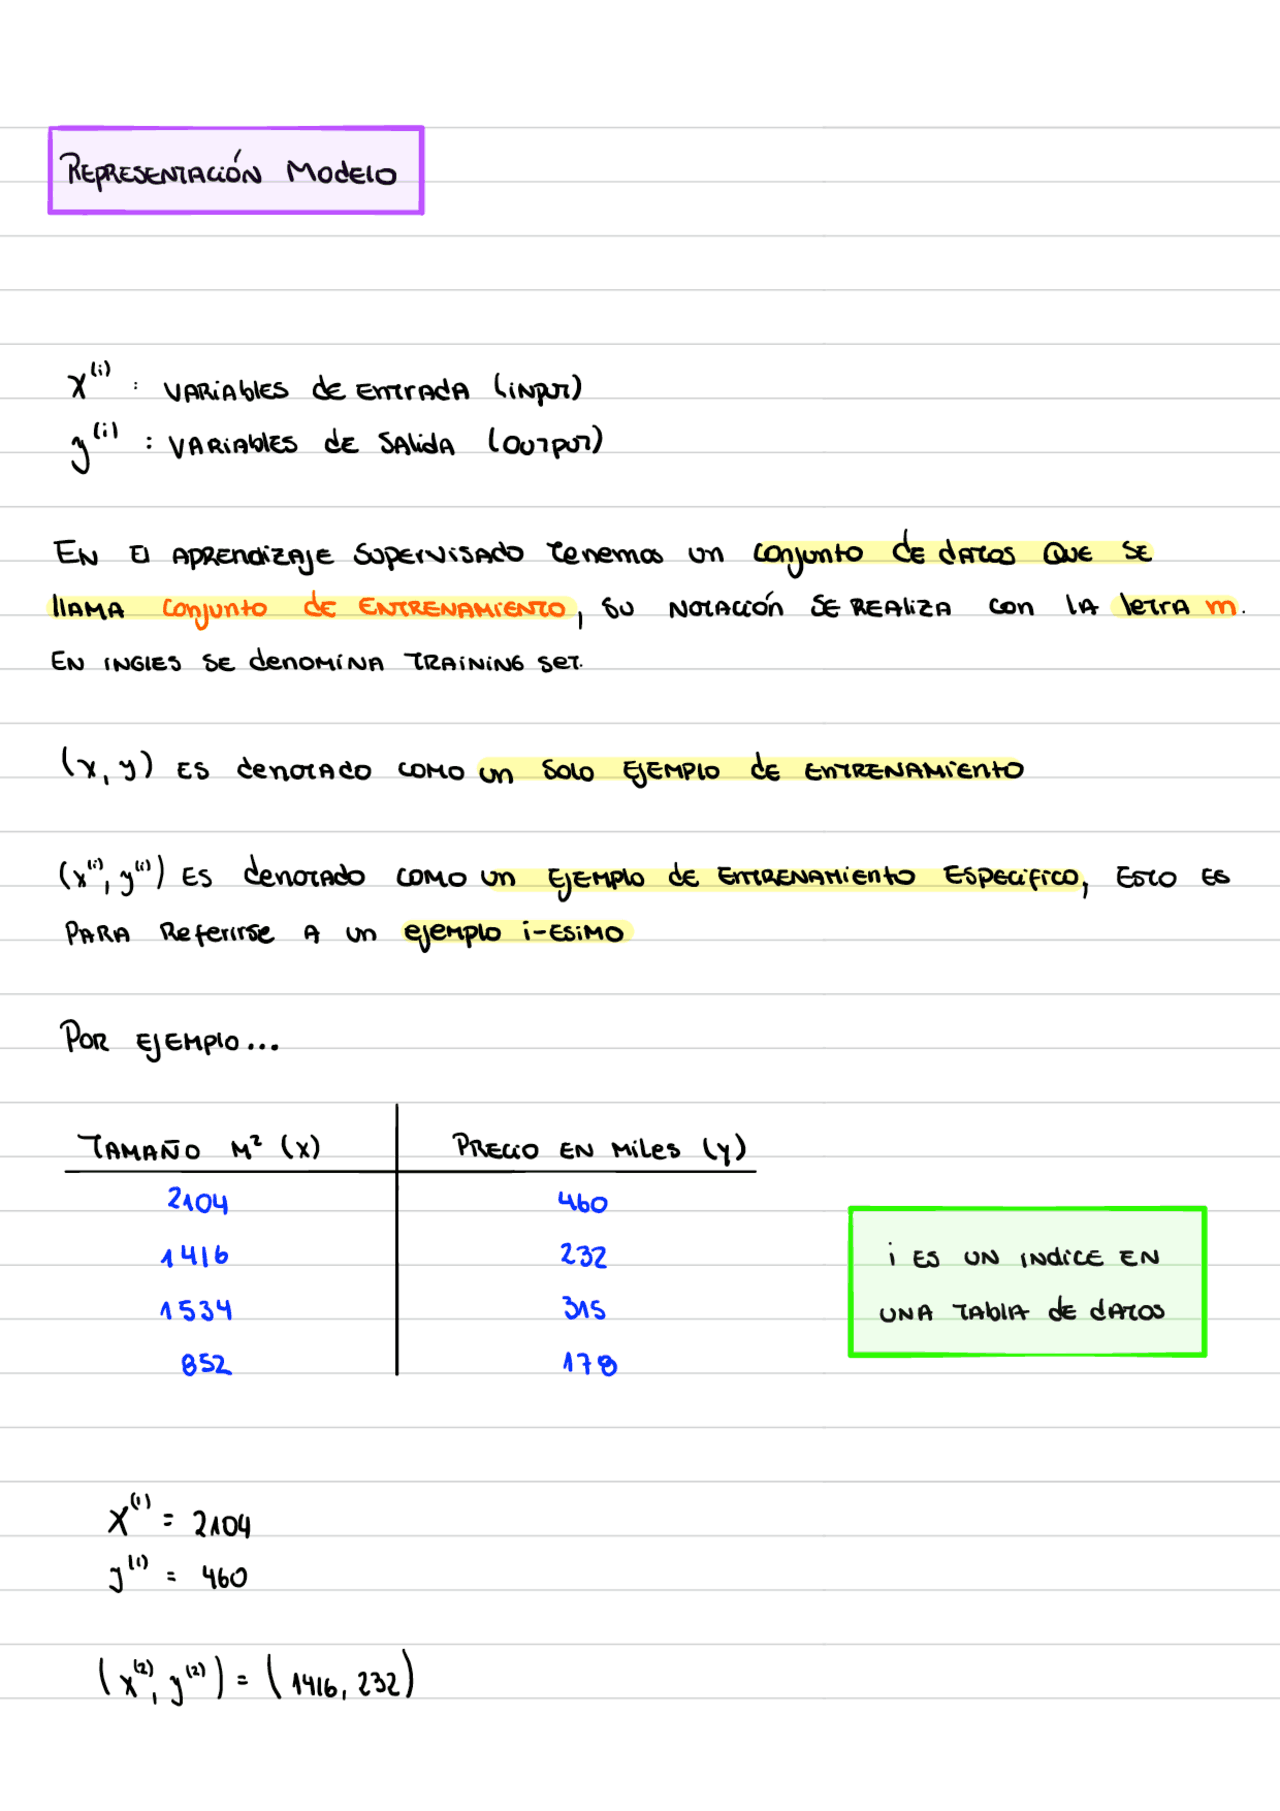 Representación Modelo
x⁽ⁱ⁾ : variables de entrada (input)
y⁽ⁱ⁾ : variables de salida (output)
En el aprendizaje supervisado tenemos un conjunto de datos que se
llama conjunto de entrenamiento, su notación se realiza con la letra m.
En ingles se denomina training set.
(x, y) es denotado como un solo ejemplo de entrenamiento
(x⁽ⁱ⁾, y⁽ⁱ⁾) es denotado como un ejemplo de entrenamiento específico, esto es
para referirse a un ejemplo i-esimo
Por ejemplo...
Tamaño m² (x) Precio en miles (y)
2104 460
1416 232
1534 315
852 178
i es un indice en
una tabla de datos
x⁽¹⁾ = 2104
y⁽¹⁾ = 460
(x⁽²⁾, y⁽²⁾) = (1416, 232)